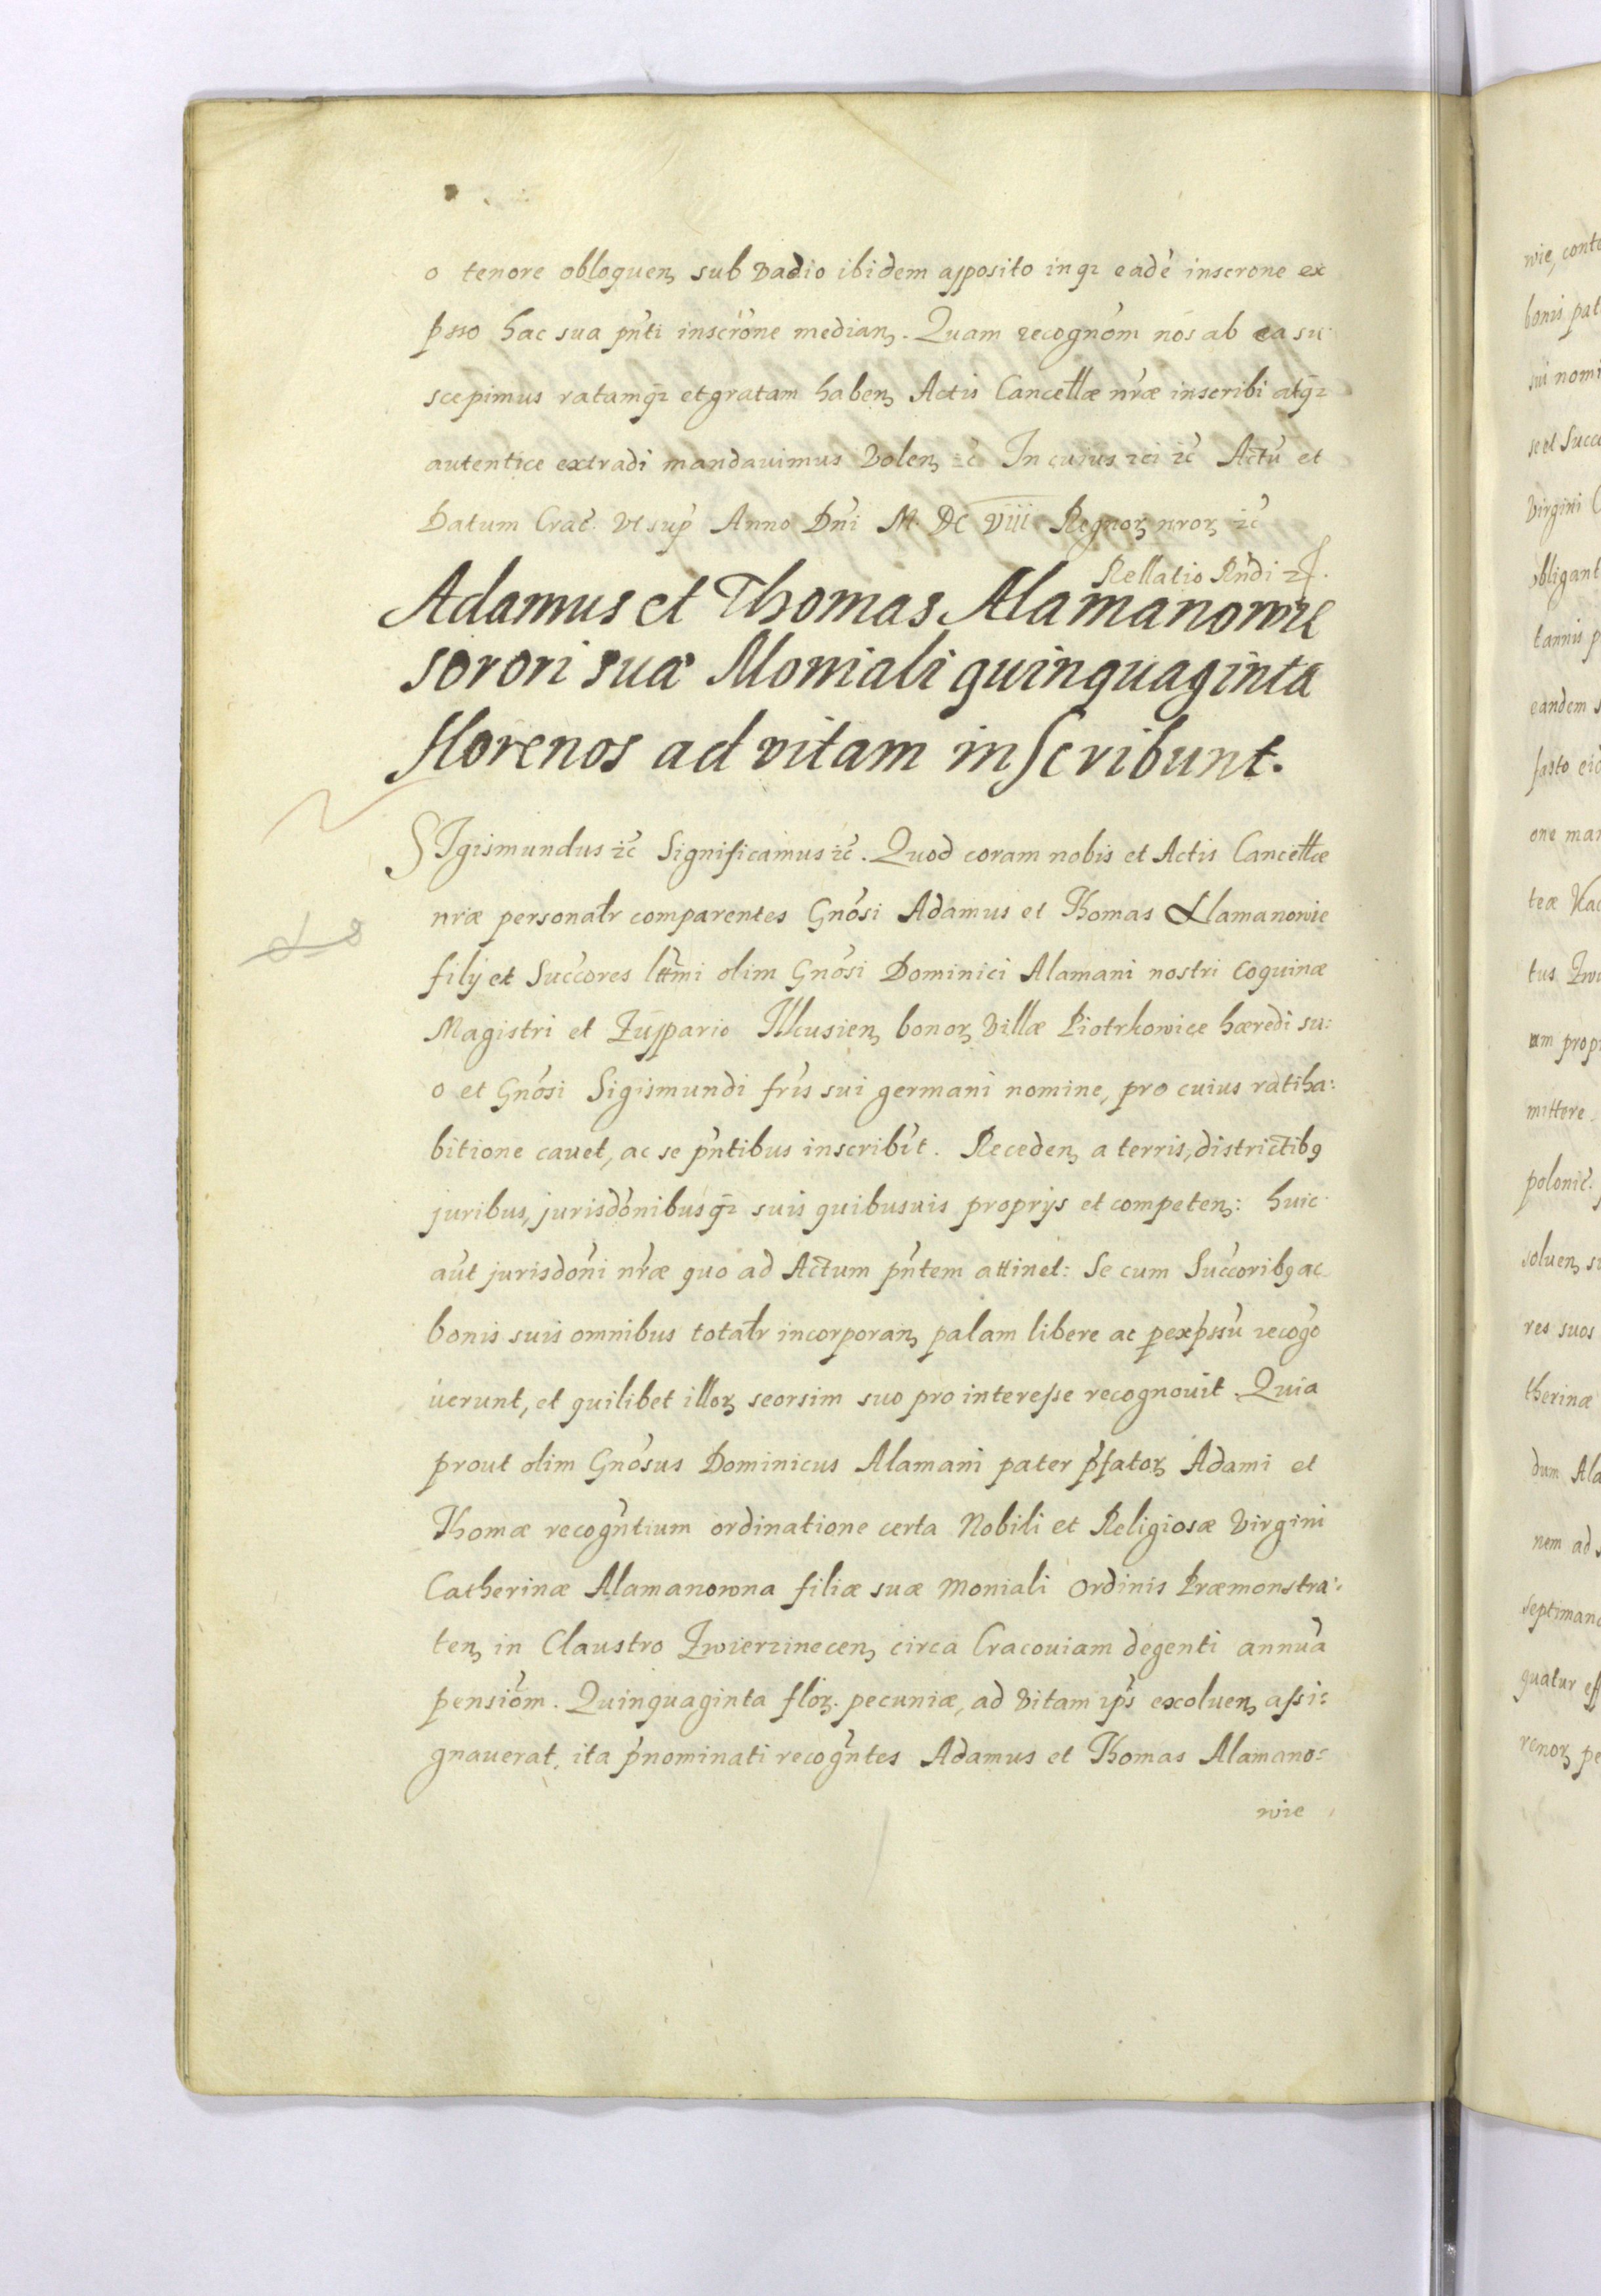 o tenore obloquen sub vadio ibidem apposito inqʒ eadē inscrone ex
pssō hac sua pn̄ti inscrone median. Quam recognōm nos ab ea su
scepimus ratamqʒ et gratam haben Actis Cancellæ nræ inscribi atqʒ
autentice extradi mandauimus Volen zc̄ In cuius rei zc̄ Actū et
Datum Crac. Vt sup̄ Anno Dn̄i M. DC viii Regnoꝝ nroꝝ zc̄
Rellatio Rn̄di zc̄.
Adamus et Thomas Alamanowie
sorori suæ Moniali quinquaginta
florenos ad vitam inscribunt.
SIgismundus zc̄ Significamus zc̄. Quod coram nobis et Actis Cancellæ
nræ personalr comparentes Gnōsi Adamus et Thomas Alamanowie
filij et Succōres lttm̄i olim Gnōsi Dominici Alamani nostri coquinæ
Magistri et Zuppario Ilkusien bonoꝝ Villæ Piotrkowice hæredi su:
o et Gnōsi Sigismundi fris sui germani nomine, pro cuius ratiha:
bitione cauet, ac se pn̄tibus inscribit. Receden a terris, districtibꝰ
juribus, jurisdōnibusqʒ suis quibusuis proprijs et competen: huic
aūt jurisdōni nræ quo ad Actum pn̄tem attinet: Se cum Succoribꝰ ac
bonis suis omnibus totalr incorporan palam libere ac ꝑexpssū recogō
uerunt, et quilibet illoꝝ seorsim suo pro interesse recognouit. Quia
prout olim Gnōsus Dominicus Alamani pater p̄fatoꝝ Adami et
Thomæ recogn̄tium ordinatione certa Nobili et Religiosæ Virgini
Catherinæ Alamanowna filiæ suæ moniali Ordinis Præmonstra:
ten in Claustro Zwierzinecen circa Cracouiam degenti annuā
pensiōm. Quinquaginta floꝝ. pecuniæ, ad Vitam ip̄s exoluen assi:
gnauerat, ita p̄nominati recogn̄tes Adamus et Thomas Alamano:
wie